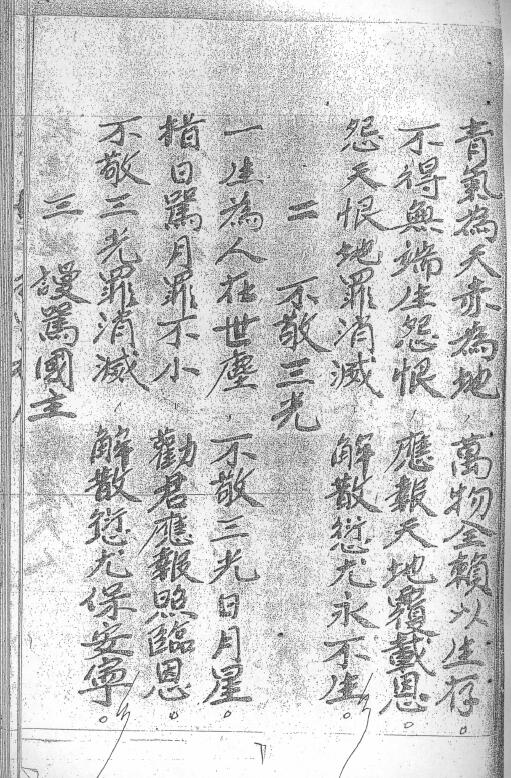 青氣為天赤為地 萬物全賴以生存。
不得無端生怨恨 應報天地覆載恩。
怨天恨地罪消滅 解散愆尤永不生。
二 不敬三光
一生為人在世塵 不敬三光日月星。
指日罵月罪不小 勸君應報照臨恩。
不敬三光罪消滅 解散愆尤保安寧。
三 謾罵國主